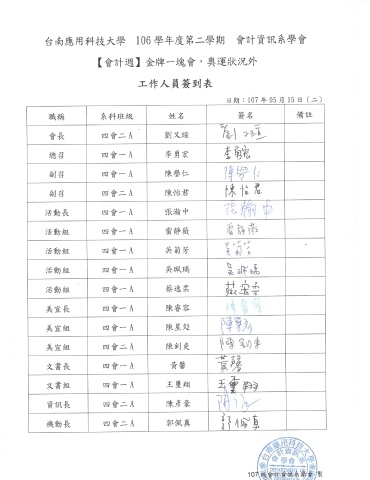 台南應用科技大學 106 學年度第二學期 會計資訊系學會
【會計週】金牌一塊會，奧運狀況外
工作人員簽到表
日期：107 年 05 月 15 日（二）
職稱 系科班級 姓名 簽名 備註
會長 四會二A 劉又綎
總召 四會一A 李勇宏 李勇宏
副召 四會一A 陳譽仁 陳譽仁
副召 四會二A 陳怡君 陳怡君
活動長 四會一A 張瀚中 張瀚中
活動組 四會一A 雷靜薇 雷靜薇
活動組 四會一A 吳菊芳 吳菊芳
活動組 四會一A 吳珮瑀 吳珮瑀
活動組 四會一A 蔡逸柔
美宣長 四會一A 陳睿容 陳睿容
美宣組 四會一A 陳星彣
美宣組 四會二A 陳釗吏
文書長 四會一A 黃馨 黃馨
文書組 四會一A 王璽翔 王璽翔
資訊長 四會二A 陳彥豪
機動長 四會二A 郭佩真 郭佩真
台南應用科技大學
會計資訊系
學會
107 級會計資訊系學會 製